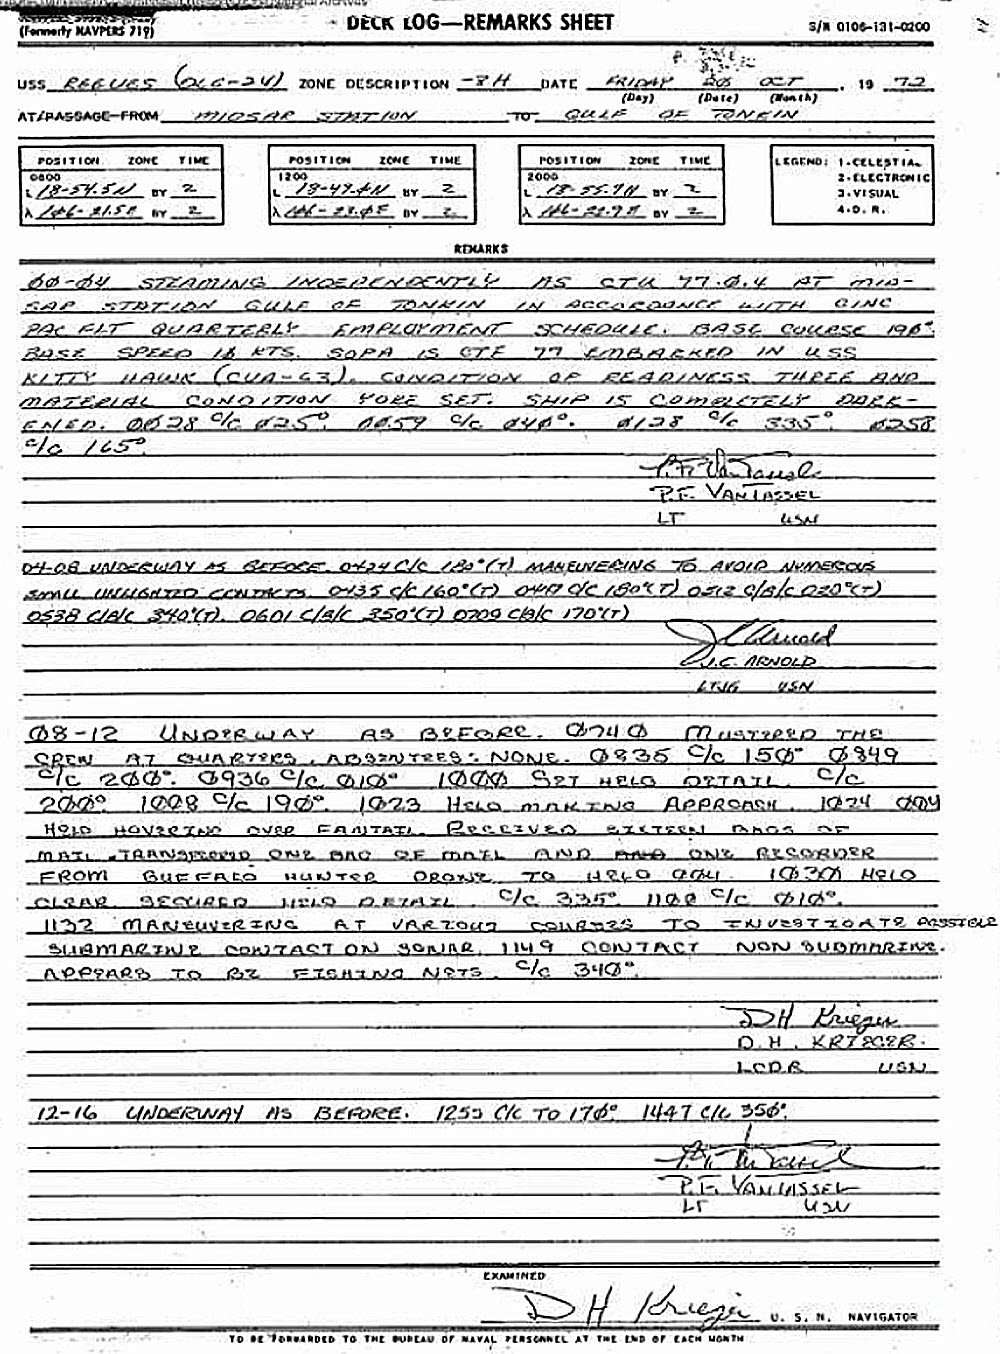 (Formerly NAVPERS 719)
DECK LOG—REMARKS SHEET
S/N 0106-131-0200
USS REEVES (DLG-24) ZONE DESCRIPTION -8H DATE FRIDAY 20 OCT , 19 72
(Day) (Date) (Month)
AT/PASSAGE-FROM MIDSAR STATION TO GULF OF TONKIN
POSITION ZONE TIME
0800
L 18-54.5N BY 2
λ 106-21.5E BY 2
POSITION ZONE TIME
1200
L 18-47.4N BY 2
λ 106-23.0E BY 2
POSITION ZONE TIME
2000
L 18-55.7N BY 2
λ 106-22.9E BY 2
LEGEND: 1-CELESTIAL
2-ELECTRONIC
3-VISUAL
4-D. R.
REMARKS
00-04 STEAMING INDEPENDENTLY AS CTU 77.0.4 AT MID-
SAR STATION GULF OF TONKIN IN ACCORDANCE WITH CINC
PAC FLT QUARTERLY EMPLOYMENT SCHEDULE. BASE COURSE 190°.
BASE SPEED 18 KTS. SOPA IS CTF 77 EMBARKED IN USS
KITTY HAWK (CVA-63). CONDITION OF READINESS THREE AND
MATERIAL CONDITION YOKE SET. SHIP IS COMPLETELY DARK-
ENED. 0028 C/C 025°. 0059 C/C 040°. 0128 C/C 335°. 0258
C/C 165°.
P.F. VanTassel
P.F. VANTASSEL
LT USN
04-08 UNDERWAY AS BEFORE. 0424 C/C 180°(T) MANEUVERING TO AVOID NUMEROUS
SMALL UNLIGHTED CONTACTS. 0435 C/C 160°(T) C/C 180°(T) 0512 C/B/C 020°(T)
0538 C/B/C 340°(T). 0601 C/B/C 350°(T) 0709 C/B/C 170°(T)
JC Arnold
J.C. ARNOLD
LTJG USN
08-12 UNDERWAY AS BEFORE. 0740 MUSTERED THE
CREW AT QUARTERS. ABSENTEES: NONE. 0835 C/C 150° 0849
C/C 200°. 0936 C/C 010° 1000 SET HELO DETAIL. C/C
200°. 1008 C/C 190°. 1023 HELO MAKING APPROACH. 1024 004
HELO HOVERING OVER FANTAIL. RECEIVED SIXTEEN BAGS OF
MAIL. TRANSFERRED ONE BAG OF MAIL AND AND ONE RECORDER
FROM BUFFALO HUNTER DRONE TO HELO 004. 1030 HELO
CLEAR. SECURED HELO DETAIL. C/C 335°. 1100 C/C 010°.
1132 MANEUVERING AT VARIOUS COURSES TO INVESTIGATE POSSIBLE
SUBMARINE CONTACT ON SONAR. 1149 CONTACT NON SUBMARINE.
APPEARS TO BE FISHING NETS. C/C 340°.
DH Krieger
D.H. KRIEGER.
LCDR USN
12-16 UNDERWAY AS BEFORE. 1255 C/C TO 170°. 1447 C/C 350°.
P.F. VanTassel
P.F. VANTASSEL
LT USN
EXAMINED
DH Krieger U. S. N. NAVIGATOR
TO BE FORWARDED TO THE BUREAU OF NAVAL PERSONNEL AT THE END OF EACH MONTH